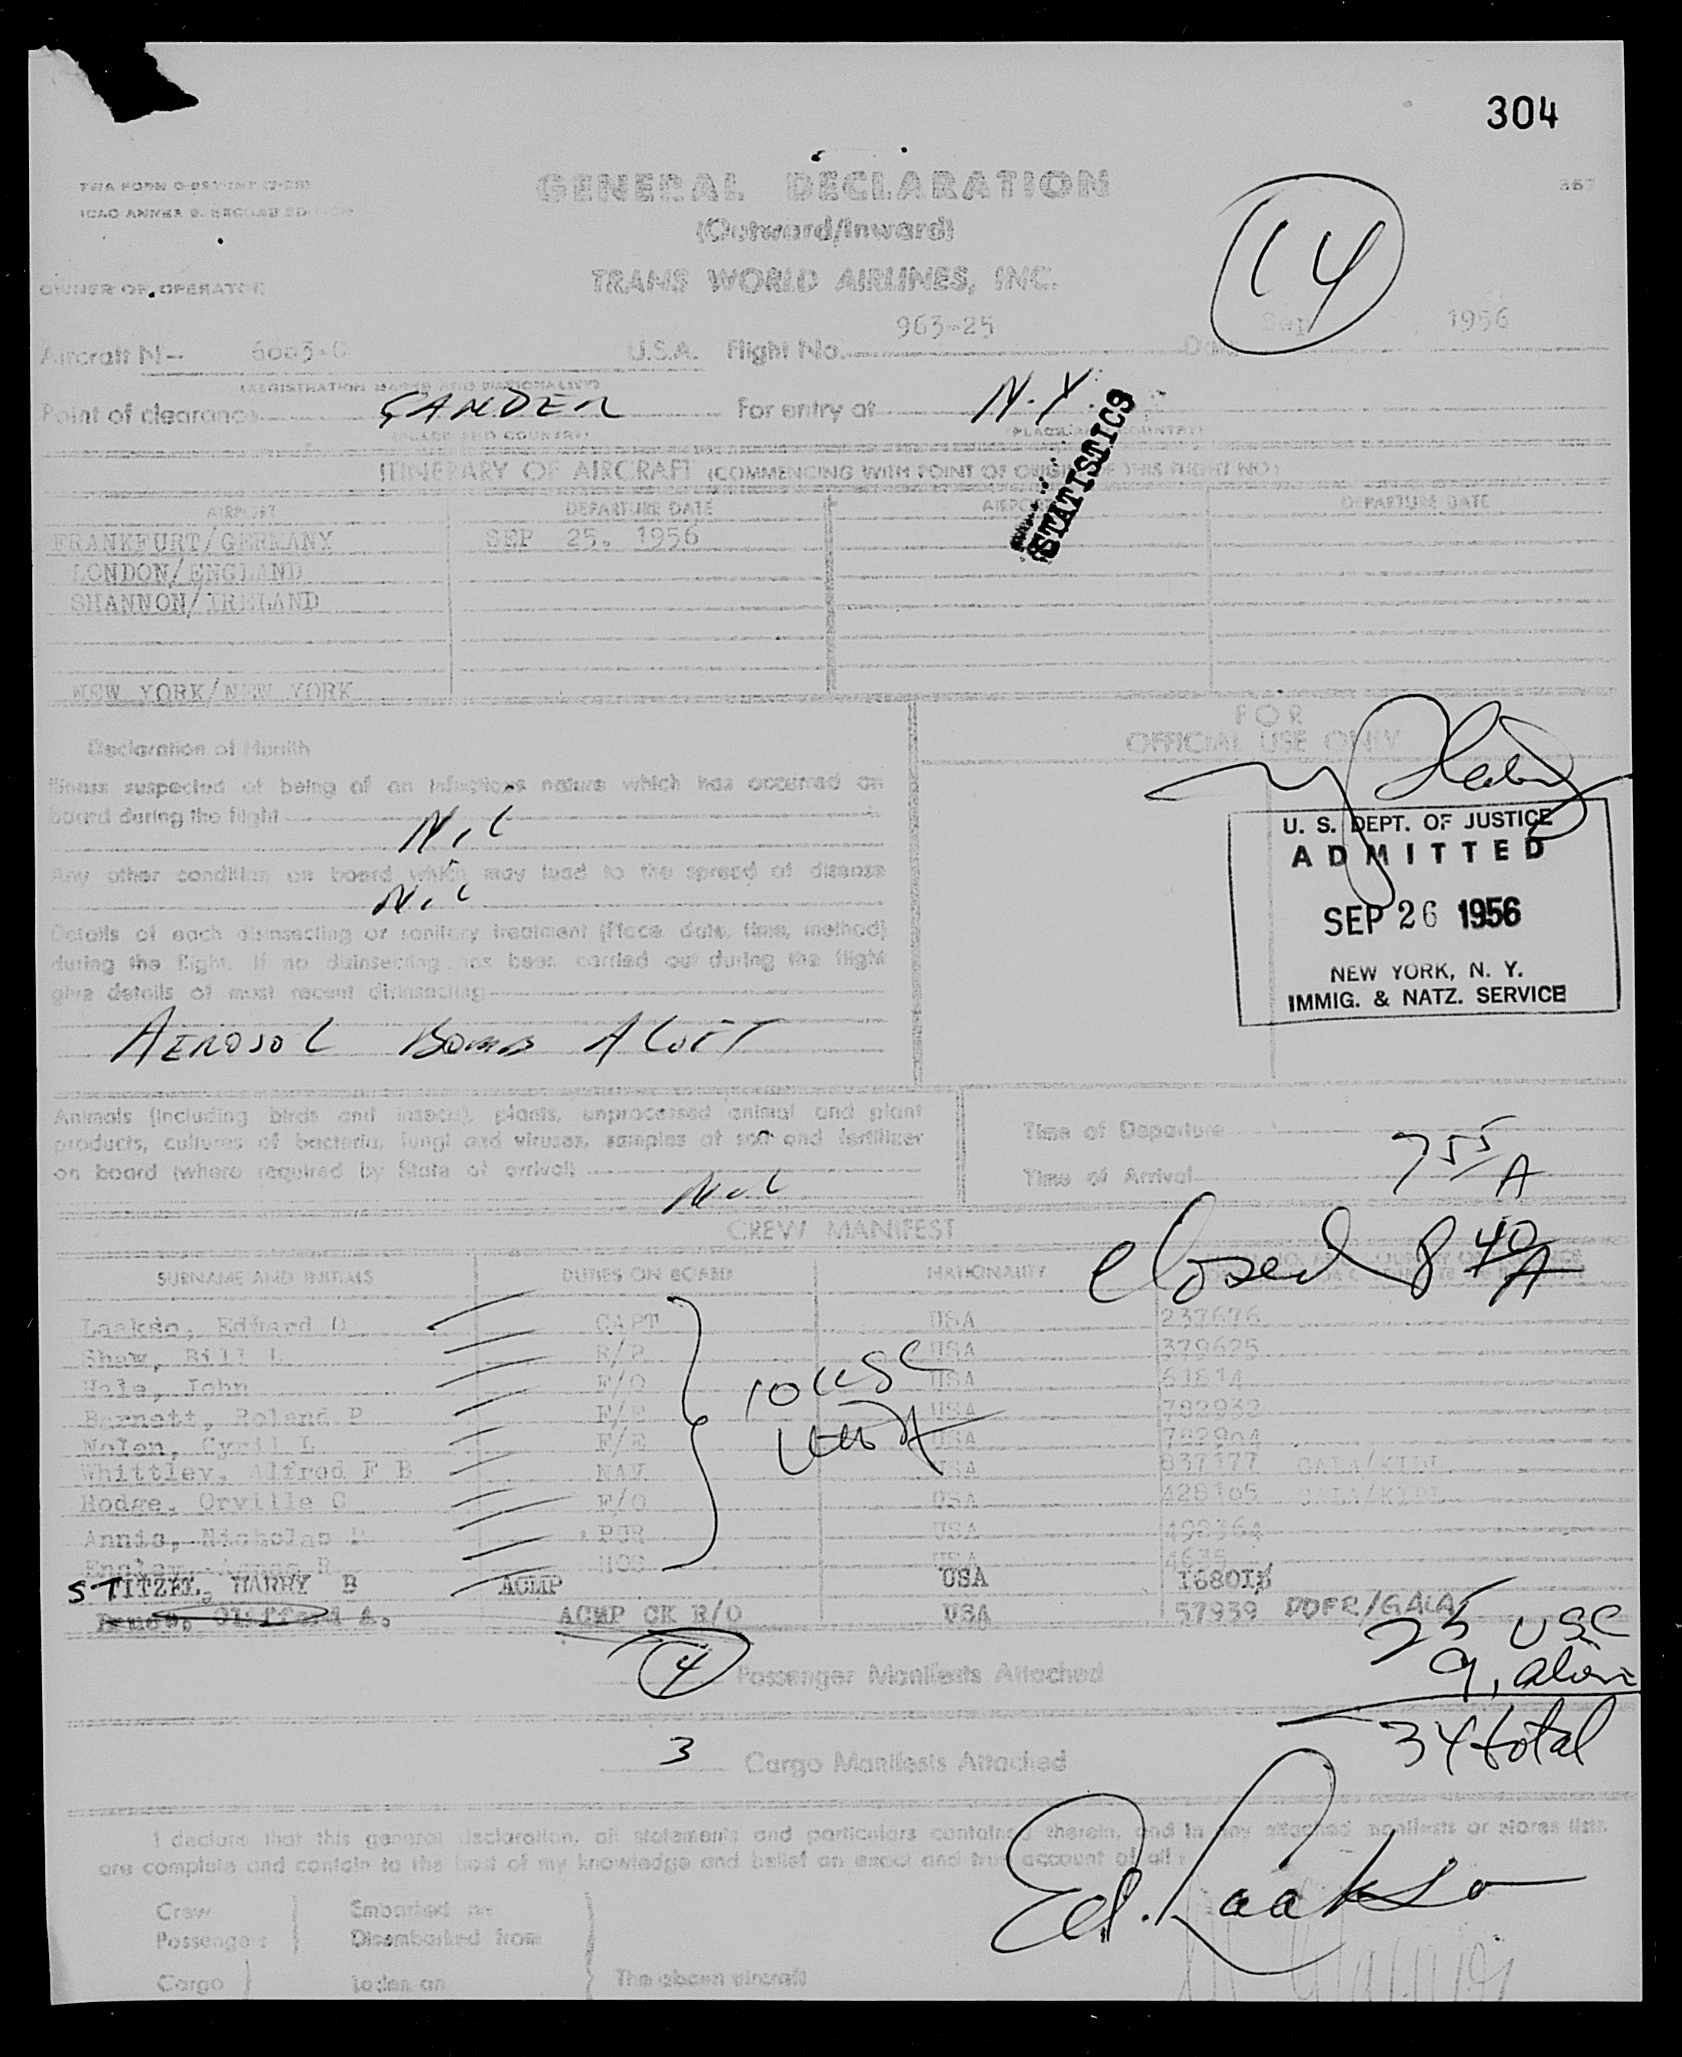 304
TWA FORM
ICAO ANNEX 9, SECOND EDITION
GENERAL DECLARATION
(Outward/Inward)
14
OWNER OR OPERATOR
TRANS WORLD AIRLINES, INC.
Aircraft N- U.S.A. Flight No. 963-25 Sep 1956
(REGISTRATION MARKS AND NATIONALITY)
Point of clearance GANDER For entry at N.Y.
(PLACE AND COUNTRY) (PLACE AND COUNTRY)
STATISTICS
ITINERARY OF AIRCRAFT (COMMENCING WITH POINT OF ORIGIN OF THIS FLIGHT NO)
AIRPORT DEPARTURE DATE AIRPORT DEPARTURE DATE
FRANKFURT/GERMANY SEP 25, 1956
LONDON/ENGLAND
SHANNON/IRELAND
NEW YORK/NEW YORK
Declaration of Health
Illness suspected of being of an infectious nature which has occurred on
board during the flight
Nil
Any other condition on board which may lead to the spread of disease
Nil
Details of each disinsecting or sanitary treatment (Place, date, time, method)
during the flight. If no disinsecting has been carried out during the flight
give details of most recent disinsecting
AEROSOL BOMB ALOFT
FOR
OFFICIAL USE ONLY
U. S. DEPT. OF JUSTICE
ADMITTED
SEP 26 1956
NEW YORK, N. Y.
IMMIG. & NATZ. SERVICE
Animals (including birds and insects), plants, unprocessed animal and plant
products, cultures of bacteria, fungi and viruses, samples of soil and fertilizer
on board (where required by State of arrival)
Nil
Time of Departure
Time of Arrival 755 A
CREW MANIFEST
Closed 8 40 A
SURNAME AND INITIALS DUTIES ON BOARD NATIONALITY
Laakso, Edward O CAPT USA 237676
Shaw, Bill L USA 379625
Hale, John F/O USA
Barnett, Roland P F/E USA 782932
Nolen, Cyril L F/E USA
Whittley, Alfred F B NAV USA 837177
Hodge, Orville G F/O USA 428165
Annis, Nicholas PUR USA 498364
HOS USA 4635
STITZEL, HARRY B ACMP USA
ACMP CK R/O USA 57939
10 USC
25 USC
9 alien
34 total
4 Passenger Manifests Attached
3 Cargo Manifests Attached
I declare that this general declaration, all statements and particulars contained therein, and in any attached manifests or stores lists
are complete and contain to the best of my knowledge and belief an exact and true account of all
Ed. Laakso
Crew Embarked on
Passengers Disembarked from
Cargo Laden on The above aircraft